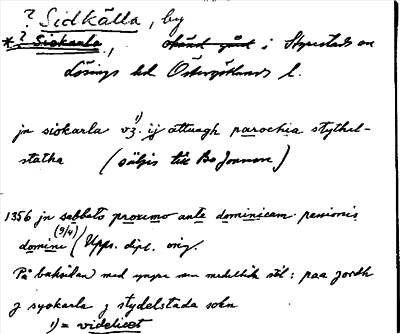 ? Sidkälla, by
*? Siokarla, okänd gård i Styrestads sn
Lösings hd Östergötlands l.
jn siokarla vz. 1) ij attungh parochia stythel-
statha (säljes till Bo Jonsson)
1356 jn sabbato proximo ante dominicam passionis
domini (9/4) (Upps. dipl. orig.
På baksidan med yngre men medeltida stil: paa jordh
j syokarla j stydelstada sokn
1) = videlicet